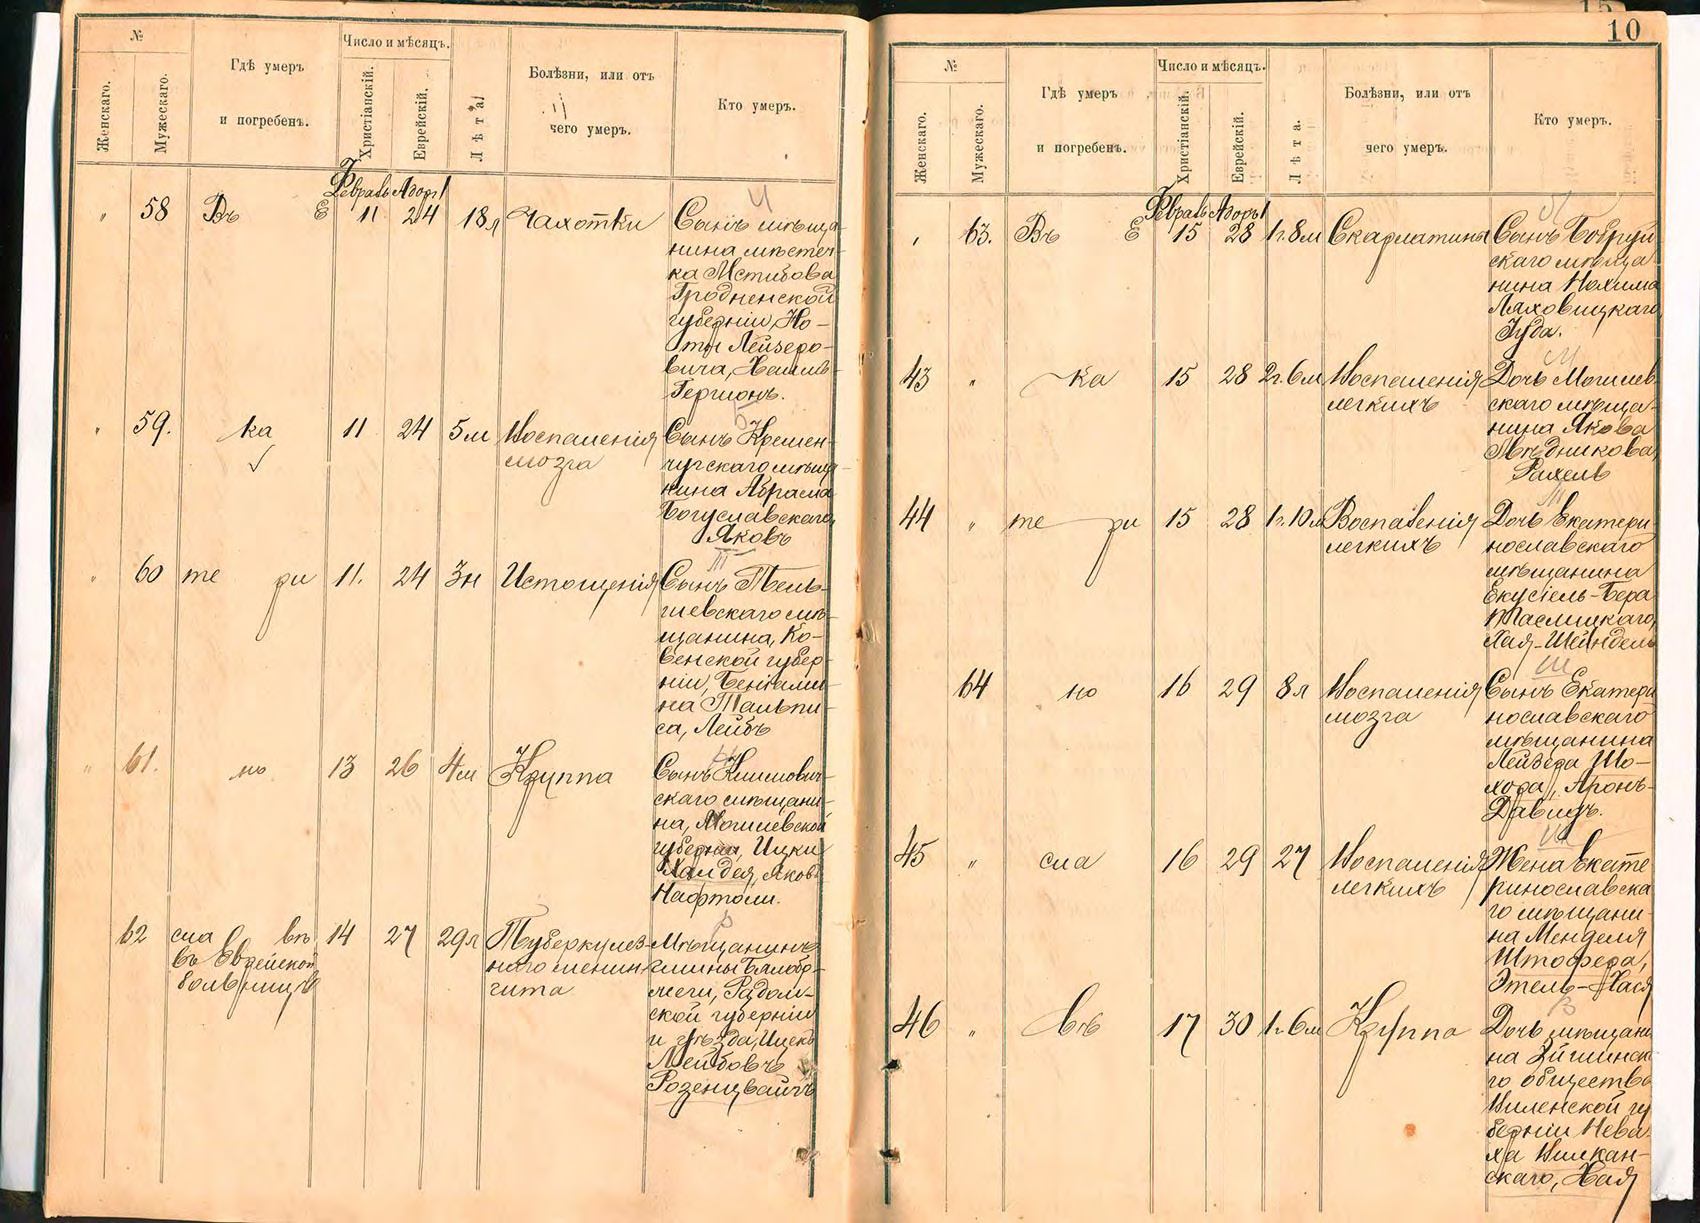 15
10
№
Женскаго.
Мужескаго.
Гдѣ умеръ
и погребенъ.
Число и мѣсяцъ.
Христіанскій.
Еврейскій.
Лѣта
Болѣзни, или отъ
чего умеръ.
Кто умеръ.
Февраль Адоръ I
" 58 Въ Е 11 24 18л Чахотки
Сынъ мѣща-
нина мѣстеч-
ка Мстибова
Гродненской
губерніи, Но-
ты Лейзеро-
вича,
Гершонъ.
" 59. ка 11 24 5м Воспаленія
мозга
Сынъ Кремен-
чугскаго мѣща-
нина Абрама
Богуславскаго,
Яковъ
" 60 те ри 11. 24 3н Истощенія
Сынъ Тель-
шевскаго мѣ-
щанина, Ко-
венской губер-
ніи, Беніами-
на Тальпи-
са, Лейбъ
" 61. но 13 26 4м Круппа
Сынъ Климович-
скаго мѣщани-
на, Могилевской
губерніи, Ицки
Хайдея, Яковъ
Нафтоли.
62 сла вѣ 14 27 29л Туберкулез-
въ Еврейской
больницѣ
наго менин-
гита
Мѣщанинъ
гмины Бялобр-
жеги, Радом-
ской губерніи
и уѣзда, Ицекъ
Лейбовъ
Розенцвайгъ
№
Женскаго.
Мужескаго.
Гдѣ умеръ
и погребенъ.
Число и мѣсяцъ.
Христіанскій.
Еврейскій.
Лѣта.
Болѣзни, или отъ
чего умеръ.
Кто умеръ.
Февраль Адоръ I
" 63. Въ Е 15 28 1г. 8м Скарлатины
Сынъ Бобруй
скаго мѣща-
нина Нохима
Ляховицкаго,
Іуда.
43 " ка 15 28 2г. 6м Воспаленія
легкихъ
Дочь Могилев-
скаго мѣща-
нина Якова
Мѣдникова,
Рахель
44 " те ри 15 28 1г. 10м Воспаленія
легкихъ
Дочь Екатери-
нославскаго
мѣщанина
Екусіель-Бера
Таслицкаго,
Хая-Шейндель
64 но 16 29 8л Воспаленія
мозга
Сынъ Екатери
нославскаго
мѣщанина
Лейзера Шо-
хора, Аронъ-
Давидъ.
45 " сла 16 29 27 Воспаленія
легкихъ
Жена Екате
ринославска
го мѣщани-
на Менделя
Штофера,
Этель-Хася
46 " вѣ 17 30 1г. 6м Круппа
Дочь мѣщани
на
го общества
Виленской гу
берніи Нева-
ха Вилкан-
скаго, Хая